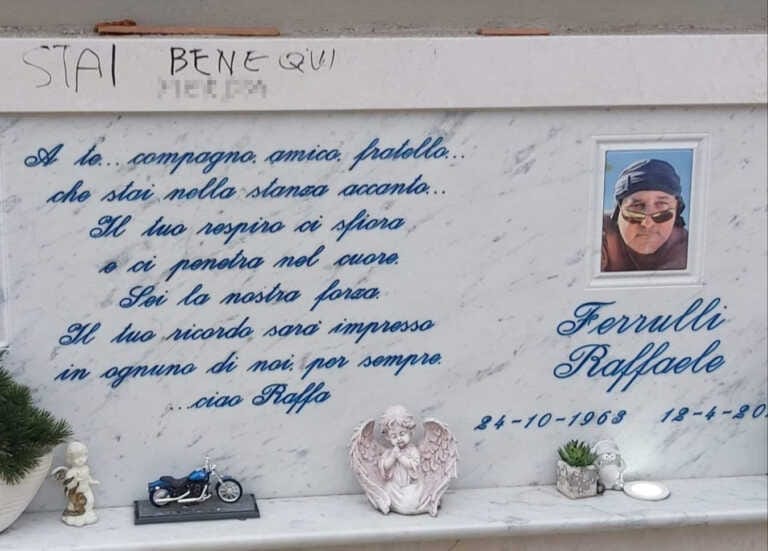 STAI BENE QUI
A te... compagno, amico, fratello...
che stai nella stanza accanto...
Il tuo respiro ci sfiora
e ci penetra nel cuore.
Sei la nostra forza.
Il tuo ricordo sarà impresso
in ognuno di noi, per sempre.
...ciao Raffa
Ferrulli
Raffaele
24-10-1963 12-4-20